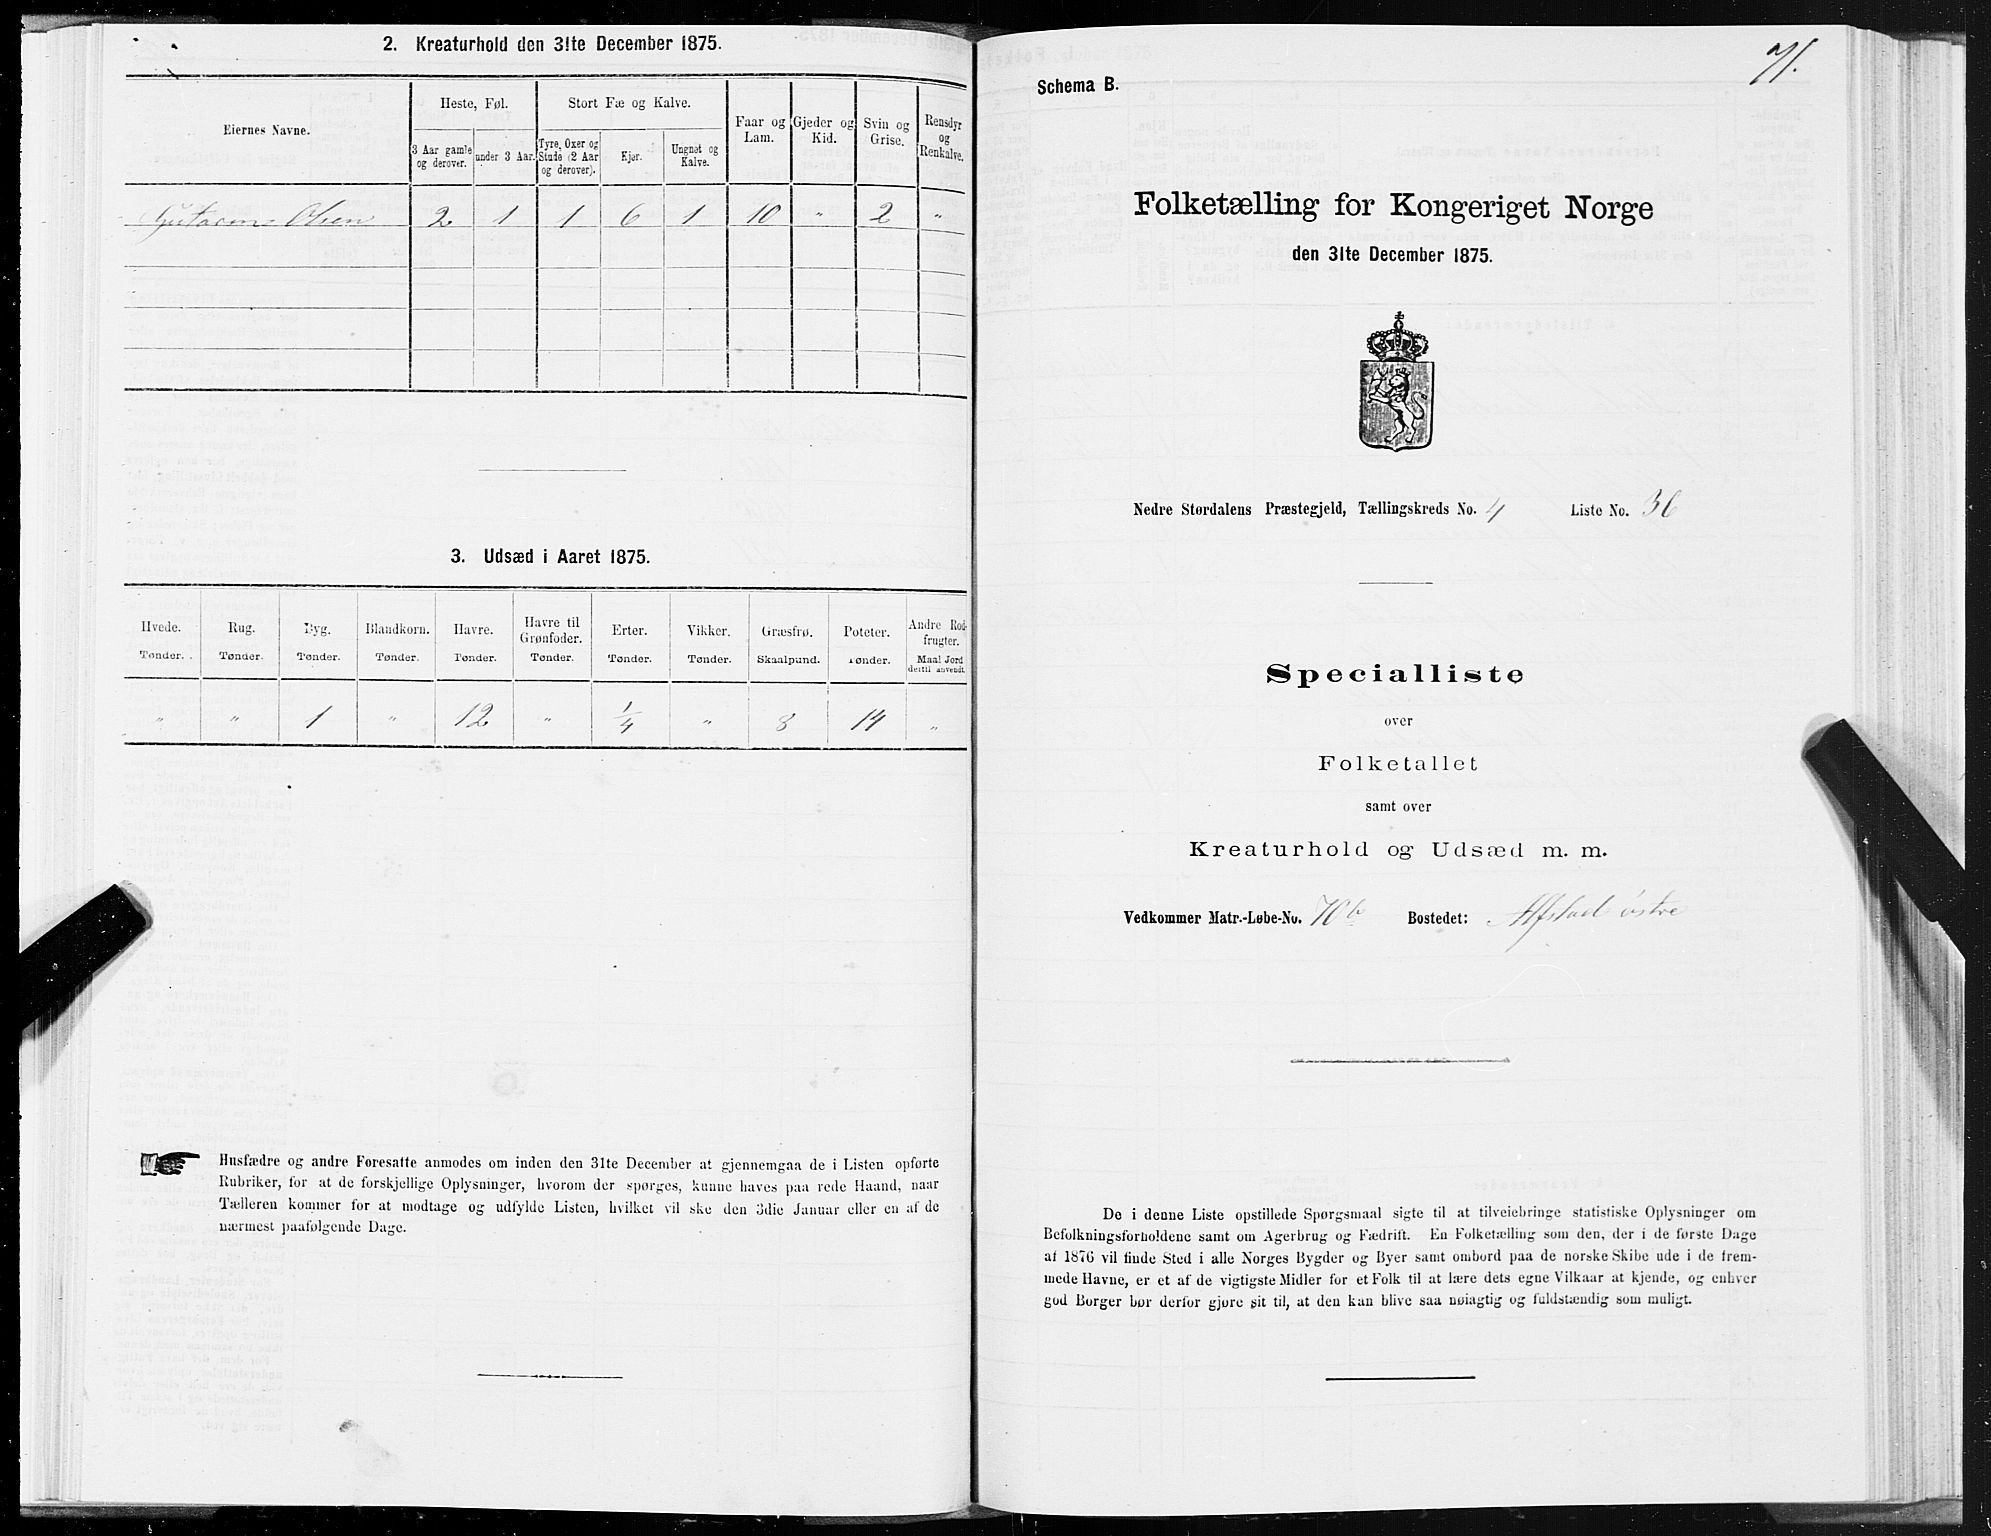 2. Kreaturhold den 31te December 1875.
Eiernes Navne.
Heste, Føl.
Stort Fæ og Kalve.
Faar og Lam.
Gjeder og Kid.
Svin og Grise.
Rensdyr og Renkalve.
3 Aar gamle og derover.
under 3 Aar.
Tyre, Oxer og Stude (2 Aar og derover).
Kjør.
Ungnøt og Kalve.
Olsen 2 1 1 6 1 10 " 2 "
3. Udsæd i Aaret 1875.
Hvede. Rug. Byg. Blandkorn. Havre. Havre til Grønfoder. Erter. Vikker. Græsfrø. Poteter. Andre Rodfrugter.
Tønder. Tønder. Tønder. Tønder. Tønder. Tønder. Tønder. Tønder. Skaalpund. Tønder. Maal Jord dertil anvendt.
" " 1 " 12 " 1/4 " 8 14 "
Husfædre og andre Foresatte anmodes om inden den 31te December at gjennemgaa de i Listen opførte
Rubriker, for at de forskjellige Oplysninger, hvorom der spørges, kunne haves paa rede Haand, naar
Tælleren kommer for at modtage og udfylde Listen, hvilket vil ske den 3die Januar eller en af de
nærmest paafølgende Dage.
71.
Schema B.
Folketælling for Kongeriget Norge
den 31te December 1875.
Nedre Størdalens Præstegjeld, Tællingskreds No. 4 Liste No. 36
Specialliste
over
Folketallet
samt over
Kreaturhold og Udsæd m. m.
Vedkommer Matr.-Løbe-No. 70b Bostedet: Alfstad østre
De i denne Liste opstillede Spørgsmaal sigte til at tilveiebringe statistiske Oplysninger om
Befolkningsforholdene samt om Agerbrug og Fædrift. En Folketælling som den, der i de første Dage
af 1876 vil finde Sted i alle Norges Bygder og Byer samt ombord paa de norske Skibe ude i de frem-
mede Havne, er et af de vigtigste Midler for et Folk til at lære dets egne Vilkaar at kjende, og enhver
god Borger bør derfor gjøre sit til, at den kan blive saa nøiagtig og fuldstændig som muligt.